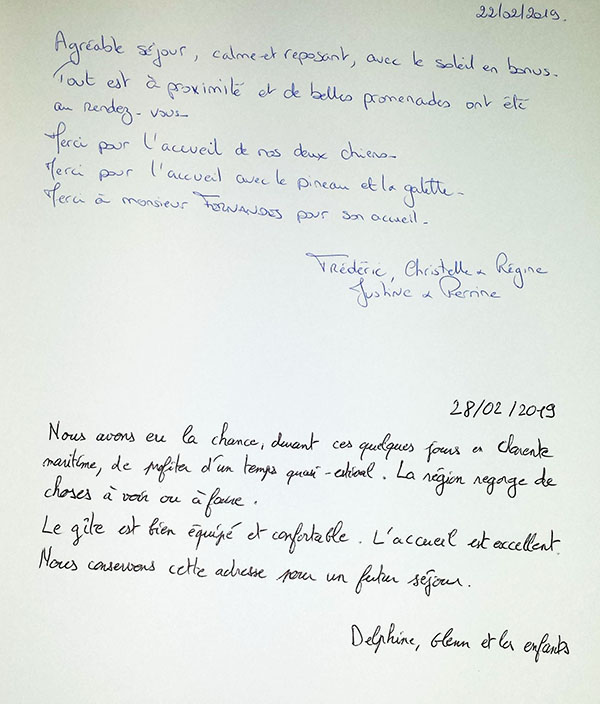 22/02/2019.
Agréable séjour, calme et reposant, avec le soleil en bonus.
Tout est à proximité et de belles promenades ont été
au rendez-vous
Merci pour l'accueil de nos deux chiens.
Merci pour l'accueil avec le pineau et la galette.
Merci à monsieur FERNANDES pour son accueil.
Frédéric, Christelle & Régine
Justine & Perrine
28/02/2019
Nous avons eu la chance, durant ces quelques jours en Charente
maritime, de profiter d'un temps quasi-estival. La région regorge de
choses à voir ou à faire.
Le gîte est bien équipé et confortable. L'accueil est excellent.
Nous conservons cette adresse pour un futur séjour.
Delphine, Glenn et les enfants